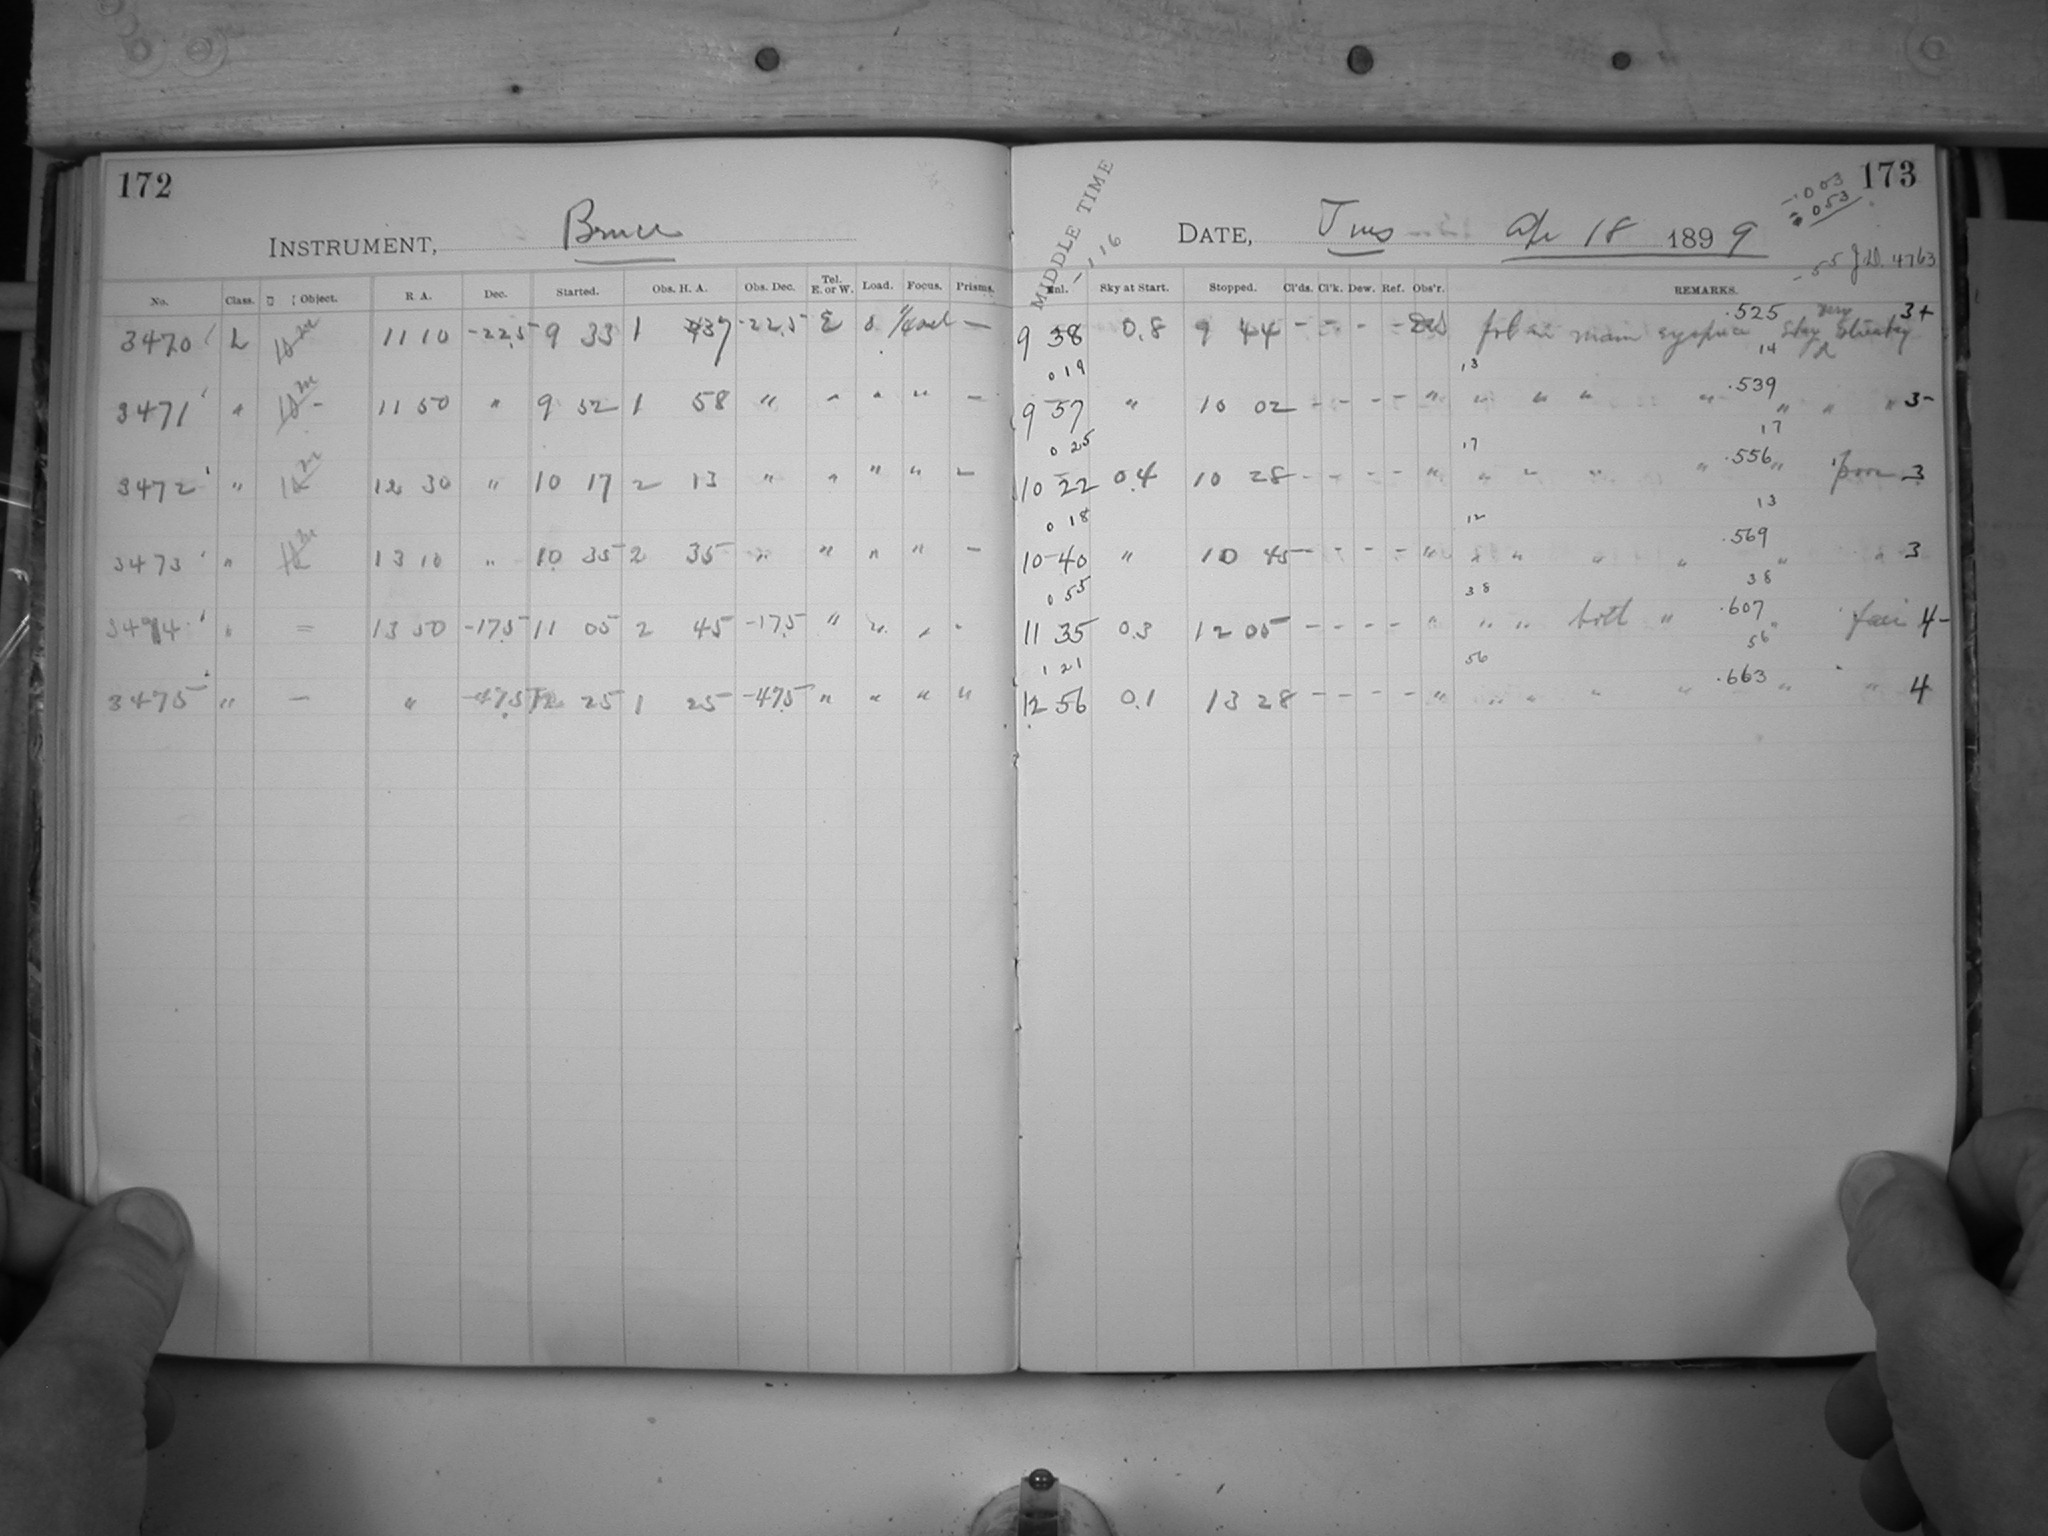 172
INSTRUMENT, Bruce
No. Class. Object. R. A. Dec. Started. Obs. H. A. Obs. Dec. Tel. E. or W. Load. Focus. Prisms.
3470 L 10m 11 10 -22.5 9 33 1 37 -22.5 E 0 —
3471 " 10m - 11 50 " 9 52 1 58 " " " " —
3472 " 12 30 " 10 17 2 13 " " " " -
3473 " 13 10 " 10 35 2 35 " " " " -
3474 " = 13 50 -17.5 11 05 2 45 -17.5 " " " -
3475 " - " -47.5 12 25 1 25 -47.5 " " " "
173
MIDDLE TIME
-.116
-.003
.053
DATE, Tues Apr 18 1899
-55 J.D. 4763
Enl. Sky at Start. Stopped. Cl'ds. Cl'k. Dew. Ref. Obs'r. REMARKS.
.525 very 3+
9 38 0.8 9 44 - - - - main eyepiece Sky Streaky
0 19 13 14
.539
9 57 " 10 02 - - - - " " " " " " " " 3-
0 25 17 17
.556
10 22 0.4 10 28 - - - - " " " " " " poor 3
0 18 12 13
.569
10 40 " 10 45 - - - - " " " " " " " 3
0 55 38 38
.607
11 35 0.3 12 05 - - - - " " " both " " fair 4-
1 21 56 56
.663
12 56 0.1 13 28 - - - - " " " " " " " 4